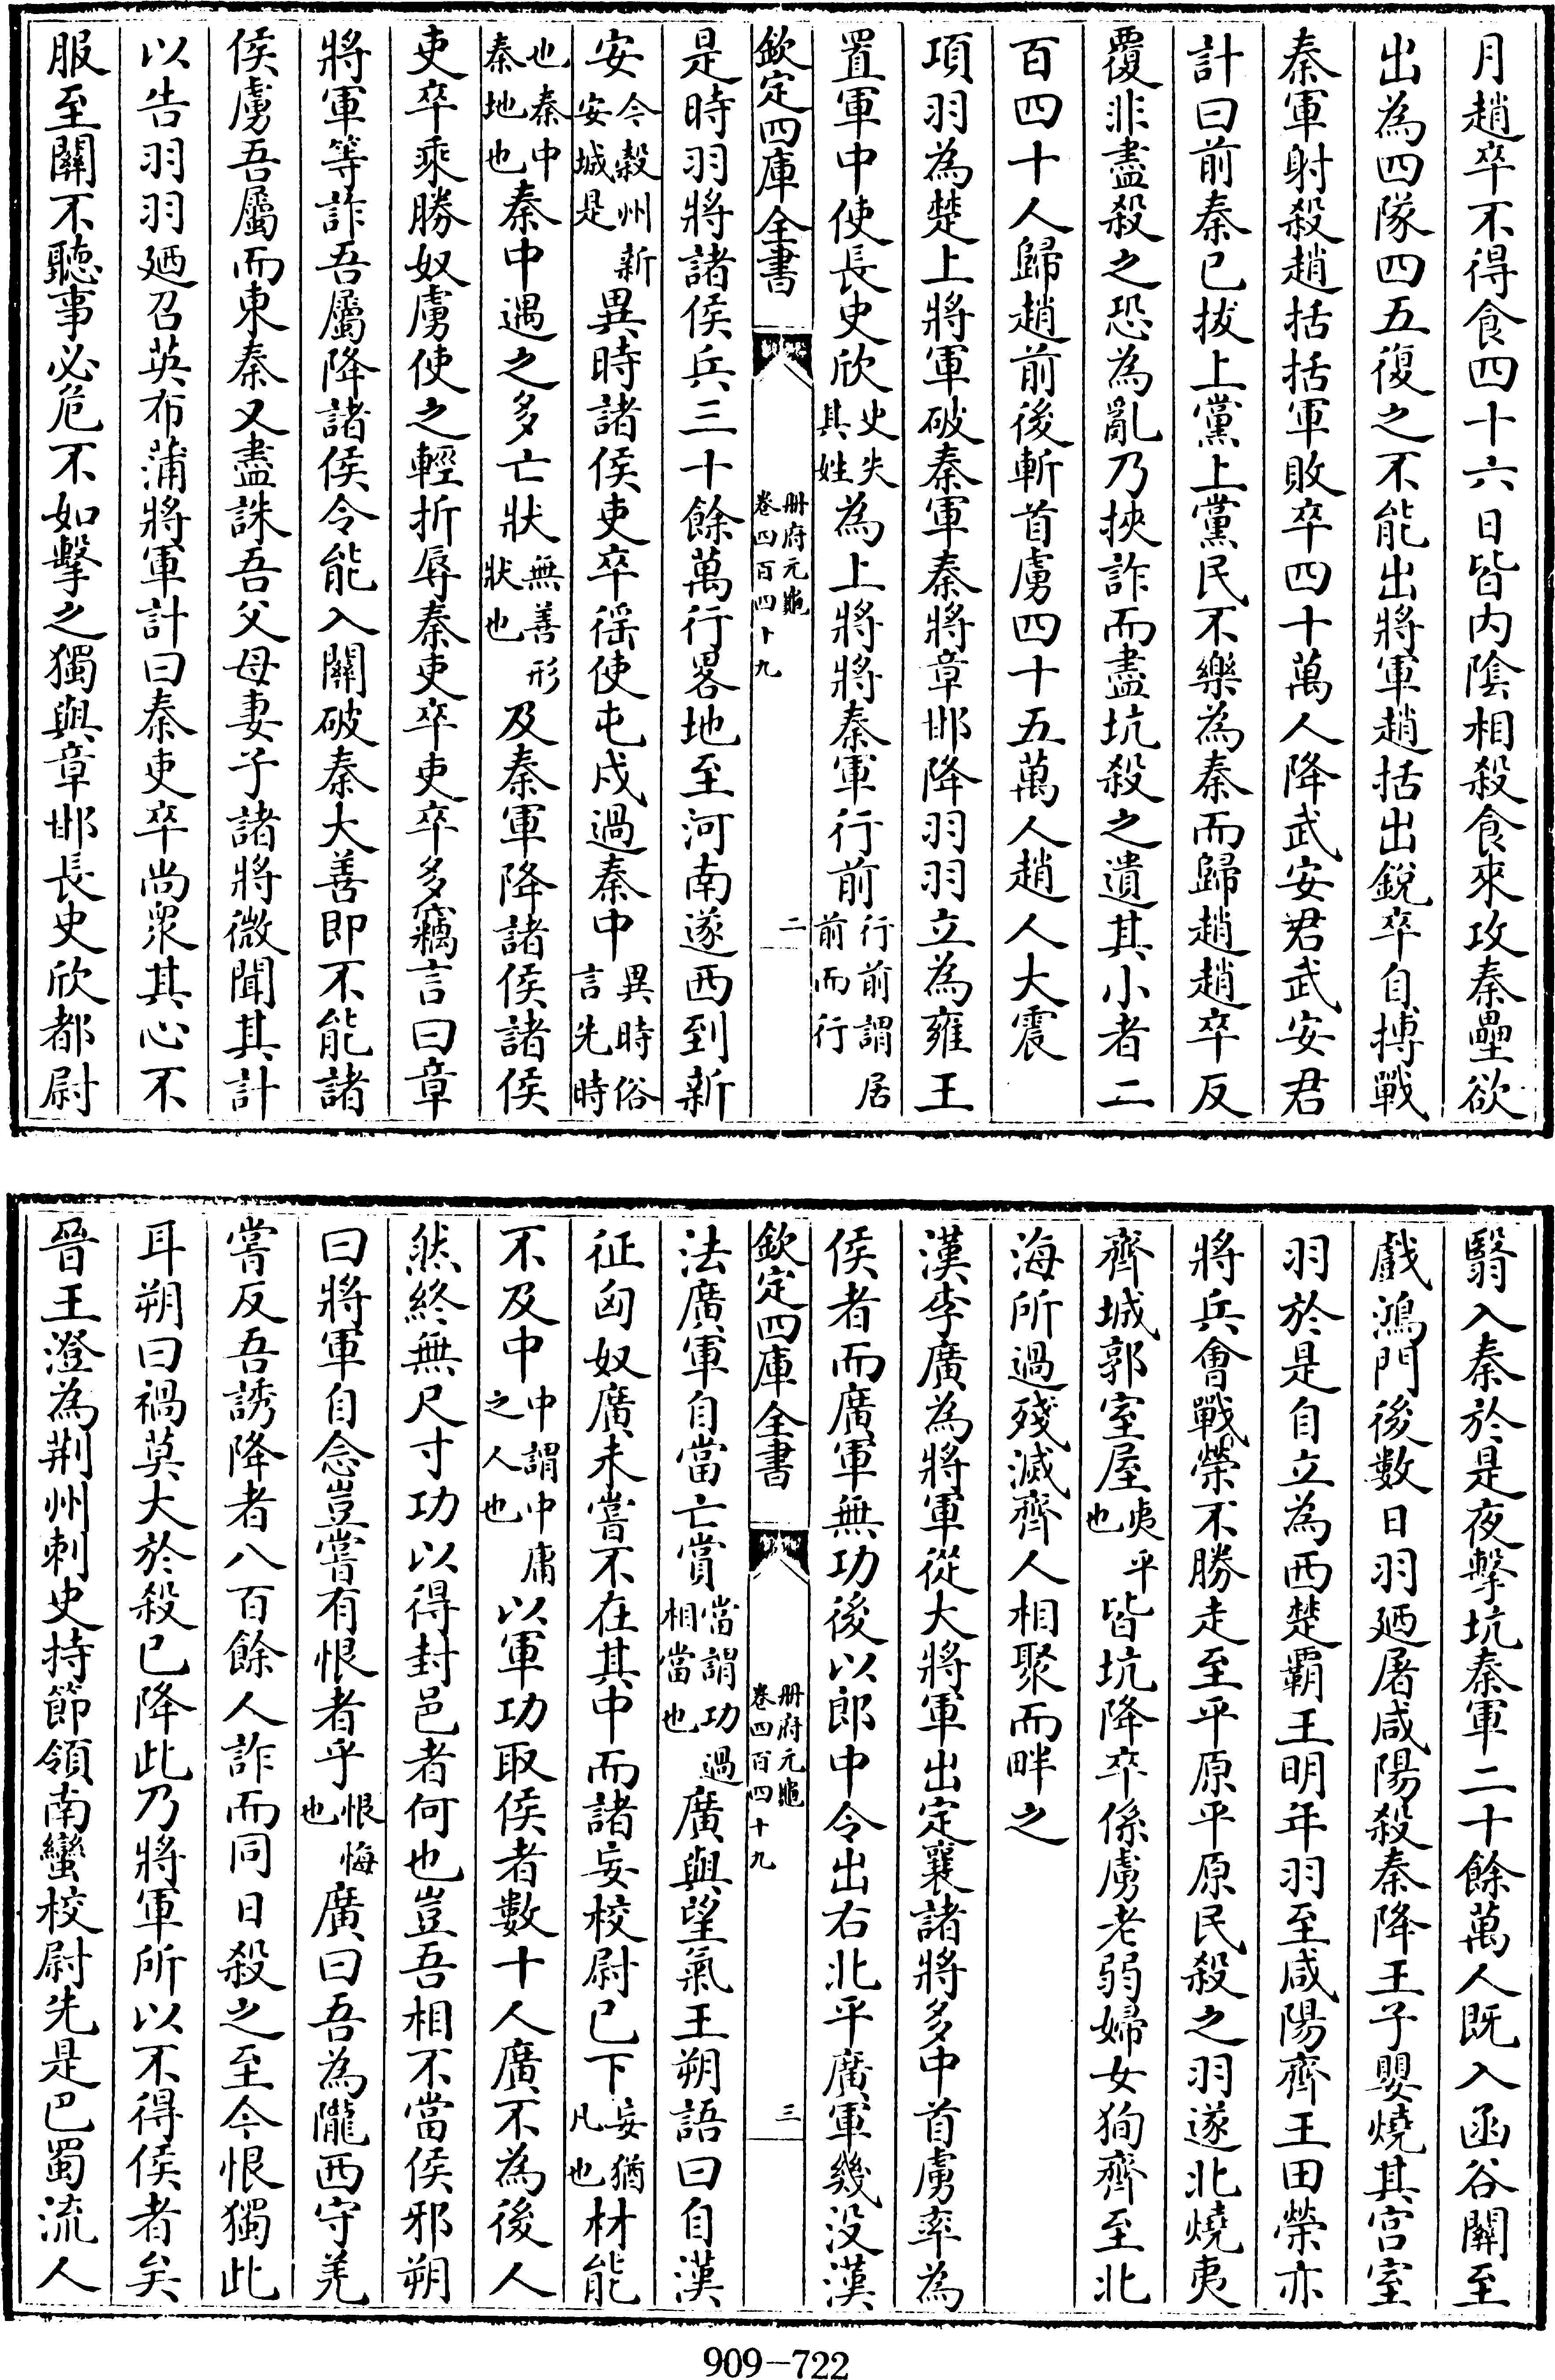 月趙卒不得食四十六日皆内隂相殺食來攻秦壘欲
出為四隊四五復之不能出將軍趙括出銳卒自搏戰
秦軍射殺趙括括軍敗卒四十萬人降武安君武安君
計曰前秦已拔上黨上黨民不樂為秦而歸趙趙卒反
覆非盡殺之恐為亂乃挾詐而盡坑殺之遺其小者二
百四十人歸趙前後斬首虜四十五萬人趙人大震
項羽為楚上將軍破秦軍秦將章邯降羽羽立為雍王
置軍中使長史欣史失其姓為上將將秦軍行前行前謂居前而行
欽定四庫全書 冊府元龜卷四百四十九 二
是時羽將諸侯兵三十餘萬行畧地至河南遂西到新
安今穀州新安城是異時諸侯吏卒徭使屯戍過秦中異時俗言先時
也秦中秦地也秦中遇之多亡狀無善形狀也及秦軍降諸侯諸侯
吏卒乘勝奴虜使之輕折辱秦吏卒吏卒多竊言曰章
將軍等詐吾屬降諸侯今能入關破秦大善即不能諸
侯虜吾屬而東秦又盡誅吾父母妻子諸將微聞其計
以告羽羽廼召英布蒲將軍計曰秦吏卒尚衆其心不
服至關不聽事必危不如擊之獨與章邯長史欣都尉
翳入秦於是夜擊坑秦軍二十餘萬人既入函谷關至
戲鴻門後數日羽廼屠咸陽殺秦降王子嬰燒其宫室
羽於是自立為西楚霸王明年羽至咸陽齊王田榮亦
將兵會戰榮不勝走至平原平原民殺之羽遂北燒夷
齊城郭室屋夷平也皆坑降卒係虜老弱婦女狥齊至北
海所過殘滅齊人相聚而畔之
漢李廣為將軍從大將軍出定襄諸將多中首虜率為
侯者而廣軍無功後以郎中令出右北平廣軍幾没漢
欽定四庫全書 冊府元龜卷四百四十九 三
法廣軍自當亡賞當謂功過相當也廣與望氣王朔語曰自漢
征匈奴廣未嘗不在其中而諸妄校尉已下妄猶凡也材能
不及中中謂中庸之人也以軍功取侯者數十人廣不為後人
然終無尺寸功以得封邑者何也豈吾相不當侯邪朔
曰將軍自念豈嘗有恨者乎恨悔也廣曰吾為隴西守羌
嘗反吾誘降者八百餘人詐而同日殺之至今恨獨此
耳朔曰禍莫大於殺已降此乃將軍所以不得侯者矣
晉王澄為荆州刺史持節領南蠻校尉先是巴蜀流人
909-722